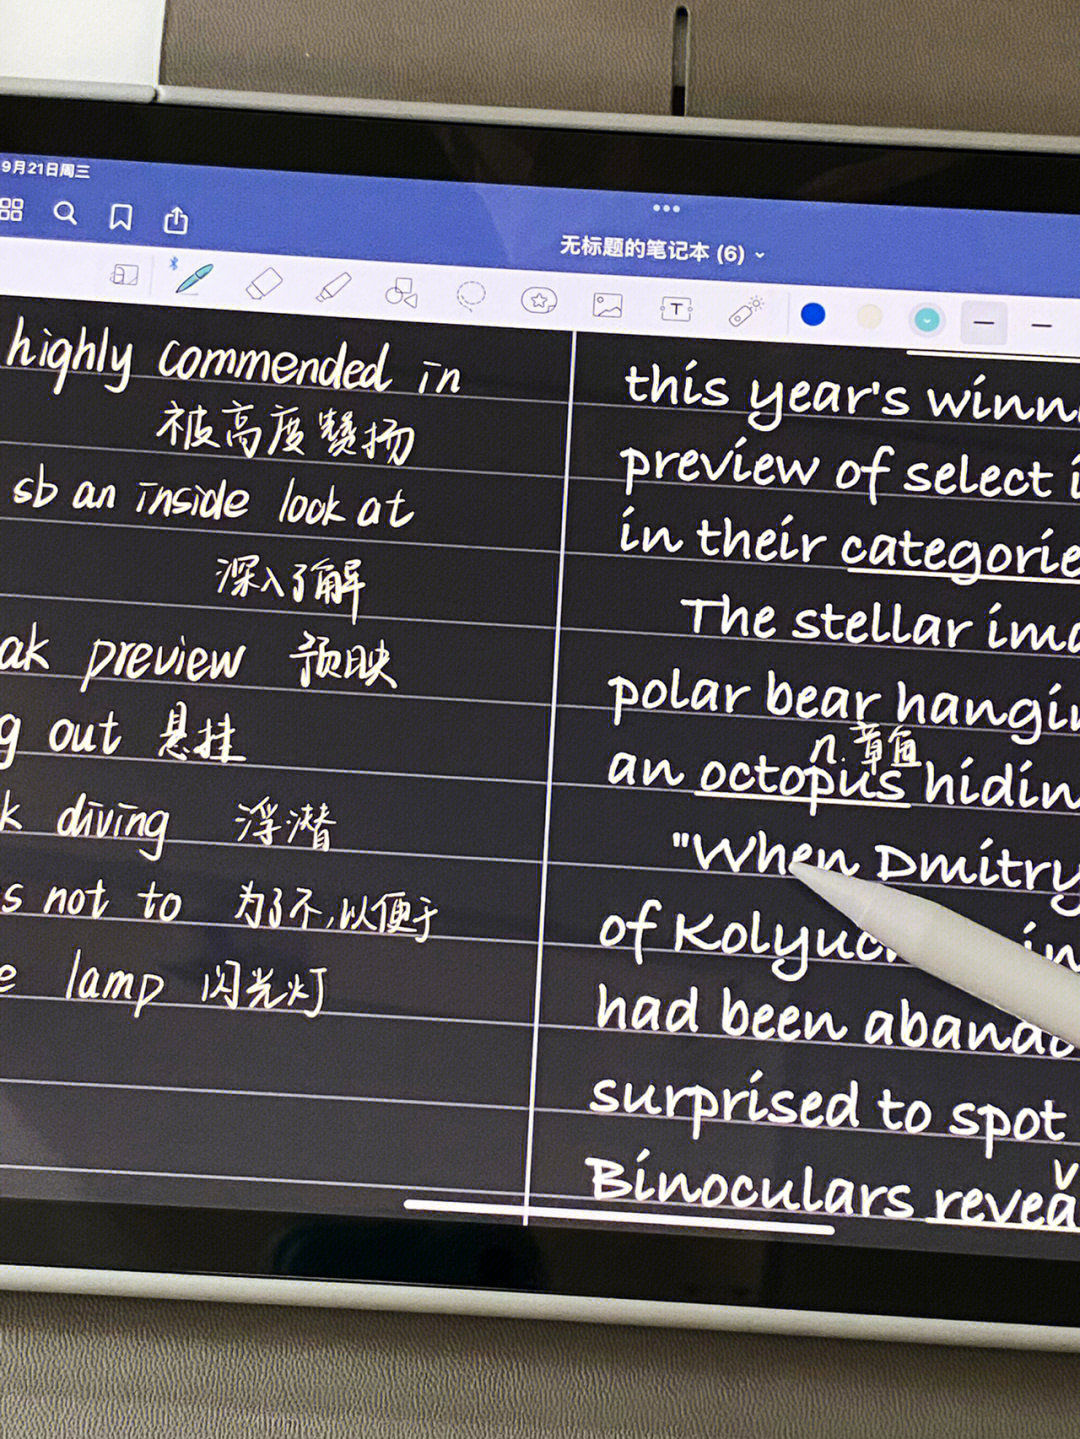 9月21日周三
无标题的笔记本 (6)
T
highly commended in
被高度赞扬
sb an inside look at
深入了解
ak preview 预映
g out 悬挂
k diving 浮潜
s not to 为了不,以便于
e lamp 闪光灯
this year's winn
preview of select i
in their categorie
The stellar ima
polar bear hangin
n.章鱼
an octopus hidin
"When Dmitry
of Kolyuc in
had been abando
surprised to spot
v
Binoculars revea